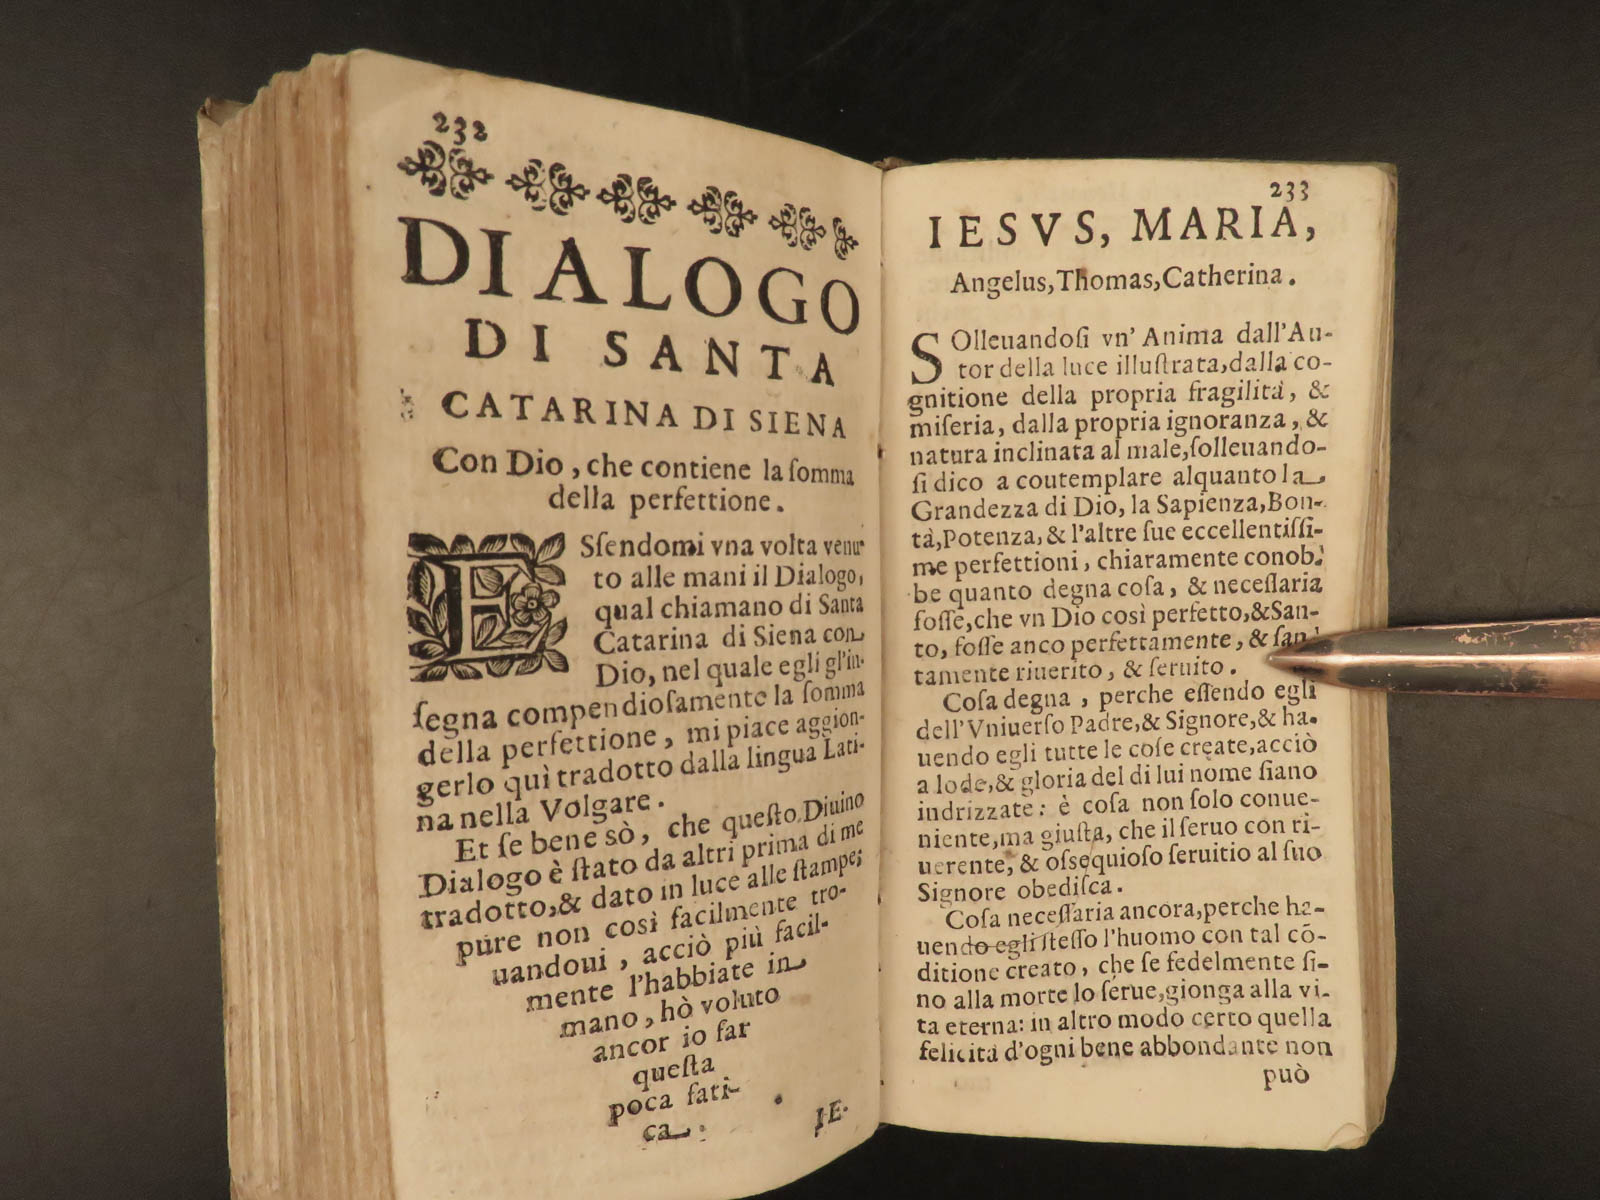 232
DIALOGO
DI SANTA
CATARINA DI SIENA
Con Dio, che contiene la ſomma
della perfettione.
ESſendomi vna volta venu-
to alle mani il Dialogo,
qual chiamano di Santa
Catarina di Siena con
Dio, nel quale egli gl'in-
ſegna compendioſamente la ſomma
della perfettione, mi piace aggion-
gerlo quì tradotto dalla lingua Lati-
na nella Volgare.
Et ſe bene sò, che queſto Diuino
Dialogo è ſtato da altri prima di me
tradotto,& dato in luce alle ſtampe;
pure non così facilmente tro-
uandoui, acciò più facil-
mente l'habbiate in
mano, hò voluto
ancor io far
queſta
poca fati-
ca.
IE-
233
IESVS, MARIA,
Angelus, Thomas, Catherina.
SOlleuandoſi vn' Anima dall'Au-
tor della luce illuſtrata,dalla co-
gnitione della propria fragilità, &
miſeria, dalla propria ignoranza, &
natura inclinata al male,ſolleuando-
ſi dico a coutemplare alquanto la
Grandezza di Dio, la Sapienza,Bon-
tà,Potenza,& l'altre ſue eccellentiſſi-
me perfettioni, chiaramente conob-
be quanto degna coſa, & neceſſaria
foſſe,che vn Dio così perfetto,&San-
to, foſſe anco perfettamente, & ſan-
tamente riuerito, & ſeruito.
Coſa degna, perche eſſendo egli
dell'Vniuerſo Padre,& Signore,& ha-
uendo egli tutte le coſe create,acciò
a lode,& gloria del di lui nome ſiano
indrizzate: è coſa non ſolo conue-
niente,ma giuſta, che il ſeruo con ri-
uerente, & oſsequioſo ſeruitio al ſuo
Signore obediſca.
Coſa neceſſaria ancora,perche ha-
uendo egli ſteſſo l'huomo con tal cō-
ditione creato, che ſe fedelmente ſi-
no alla morte lo ſerue,gionga alla vi-
ta eterna: in altro modo certo quella
felicità d'ogni bene abbondante non
può